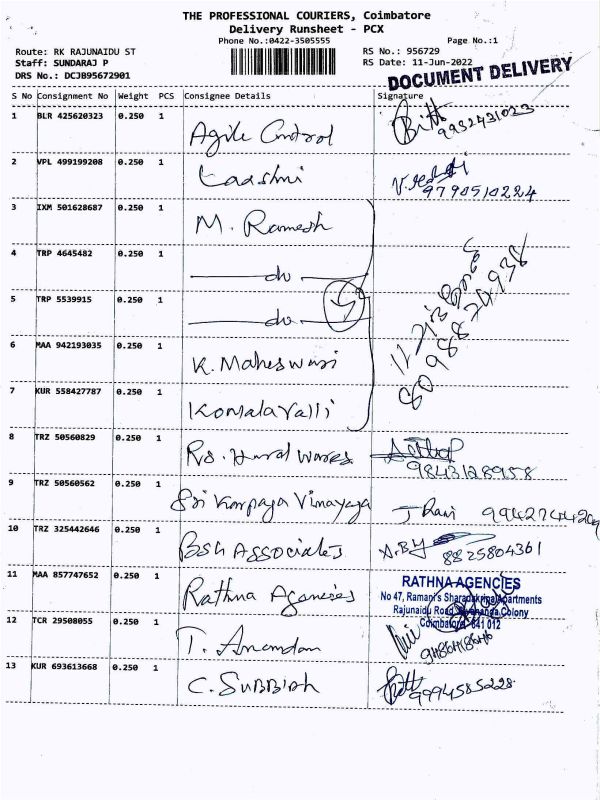 THE PROFESSIONAL COURIERS, Coimbatore
Delivery Runsheet - PCX
Phone No.:0422-3505555 Page No.:1
Route: RK RAJUNAIDU ST RS No.: 956729
Staff: SUNDARAJ P RS Date: 11-Jun-2022
DRS No.: DCJB95672901
DOCUMENT DELIVERY
S No Consignment No Weight PCS Consignee Details Signature
1 BLR 425620323 0.250 1 Agile Control 9932431023
2 VPL 499199208 0.250 1 Laxshmi 9790510224
3 IXM 501628687 0.250 1 M. Ramesh
4 TRP 4645482 0.250 1 do
5 TRP 5539915 0.250 1 do 5
6 MAA 942193035 0.250 1 K. Maheswari
7 KUR 558427787 0.250 1 Komalavalli
8 TRZ 50560829 0.250 1 Rs. Hard Wares
9843128958
9 TRZ 50560562 0.250 1 Sri Karpaga Vinayaga J Rani
10 TRZ 325442646 0.250 1 BSG Associates 8825804361
11 MAA 857747652 0.250 1 Rathna Agencies
RATHNA AGENCIES
No 47, Ramani's Sharadakripa Apartments
Rajunaidu Road, Sivananda Colony
Coimbatore - 641 012
12 TCR 29508055 0.250 1 T. Anandan
13 KUR 693613668 0.250 1 C. SUBBIAH 9994585228